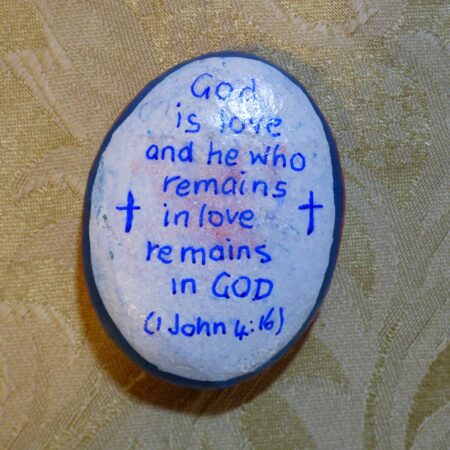 God
is love
and he who
remains
in love
remains
in GOD
(1 John 4:16)